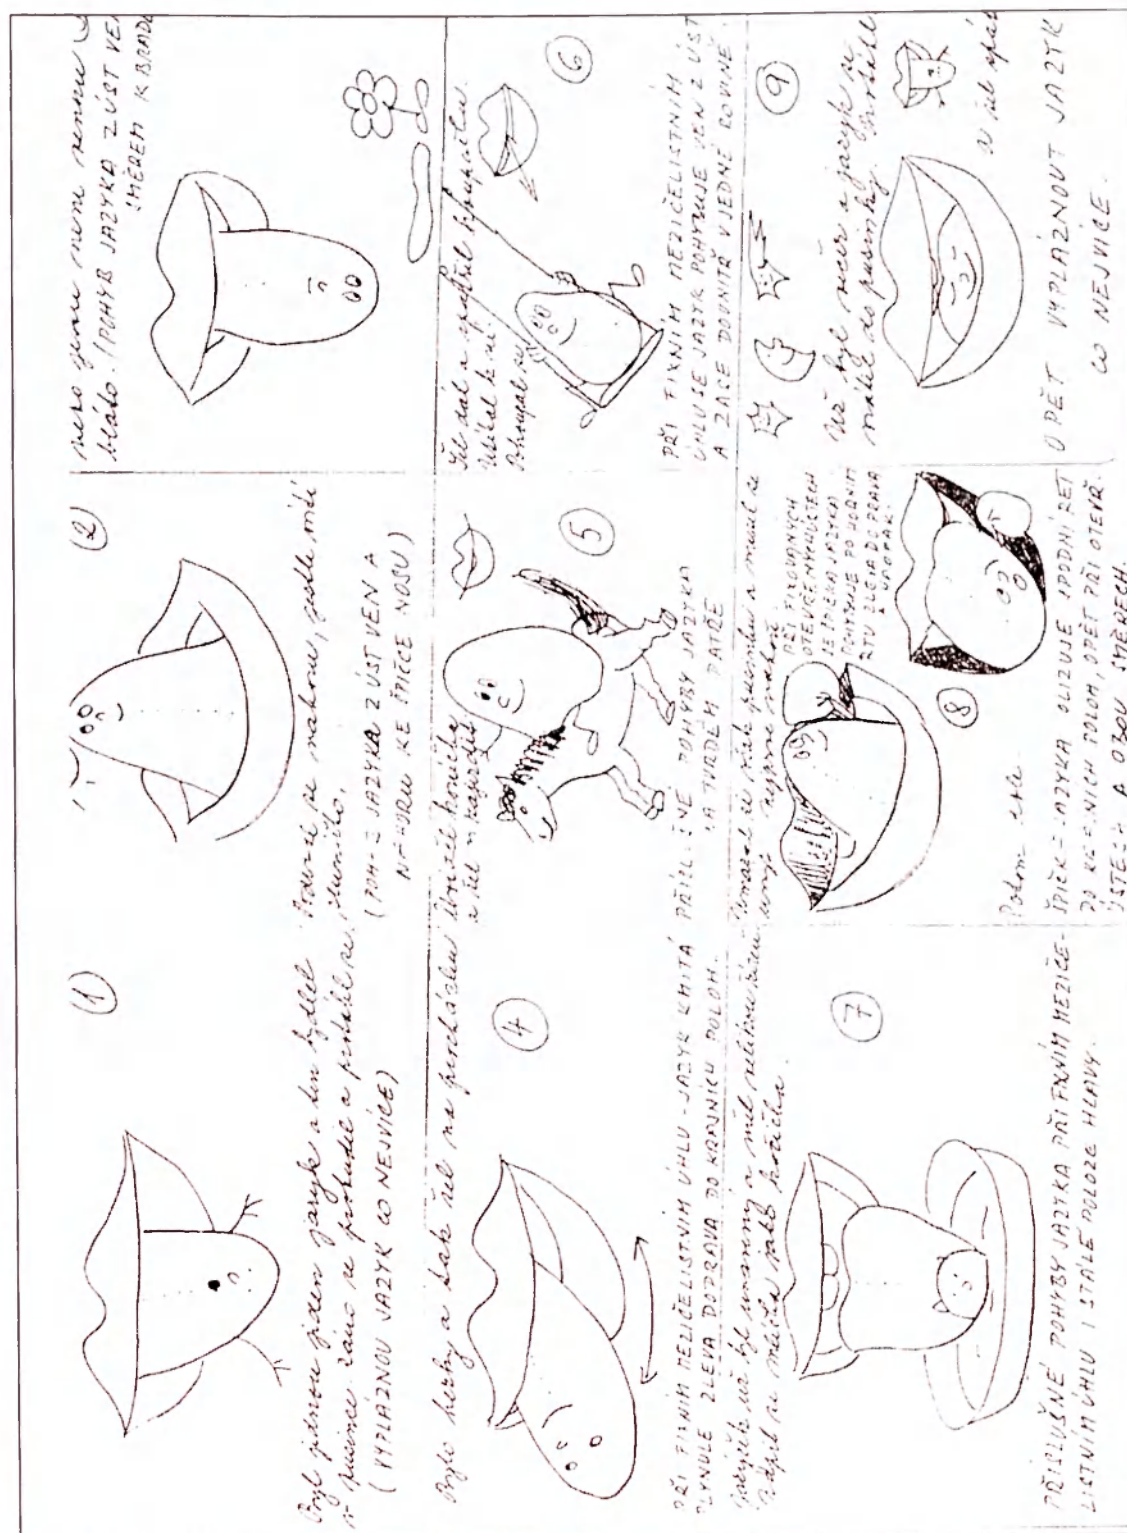 ①
Byl jednou jeden jazyk a ten bydlel
v pusince. Ráno se probudil a protáhl se.
(VYPLÁZNOU JAZYK CO NEJVÍCE)
②
Podíval se nahoru, jestli svítí
sluníčko.
(POHYB JAZYKA Z ÚST VEN A
NAHORU KE ŠPIČCE NOSU)
není
bláto. (POHYB JAZYKA Z ÚST VEN
SMĚREM K BRADĚ
④
Bylo hezky a tak šel na procházku
PŘI FIXNÍM MEZIČELISTNÍM ÚHLU - JAZYK KMITÁ
PLYNULE ZLEVA DOPRAVA DO KRAJNÍCH POLOH.
⑤
uviděl koníčka
PŘÍSLUŠNÉ POHYBY JAZYKA
NA TVRDÉM PATŘE
⑥
Šel dál a spatřil houpačku.
Pohoupal se
PŘI FIXNÍM MEZIČELISTNÍM
ÚHLU SE JAZYK POHYBUJE VEN Z ÚST
A ZASE DOVNITŘ V JEDNÉ ROVINĚ
⑦
Jazýček už byl unavený a měl velikou žízeň
Napil se mlíčka jako kočička.
PŘÍSLUŠNÉ POHYBY JAZYKA PŘI FIXNÍM MEZIČE-
LISTNÍM ÚHLU I STÁLÉ POLOZE HLAVY.
⑧
Umazal se však pusinku a musel se
umýt nejprve nahoře.
PŘI FIXOVANÝCH
OTEVŘENÝCH ÚSTECH
SE ŠPIČKA JAZYKA
POHYBUJE PO HORNÍM
RTU ZLEVA DOPRAVA
A NAOPAK.
Potom
ŠPIČKA JAZYKA OLIZUJE SPODNÍ RET
DO KRAJNÍCH POLOH, OPĚT PŘI OTEVŘ.
ÚSTECH A OBOU SMĚRECH.
⑨
Už byl večer a jazyk se
vrátil do pusinky.
a šel spát
OPĚT VYPLÁZNOUT JAZYK
CO NEJVÍCE.